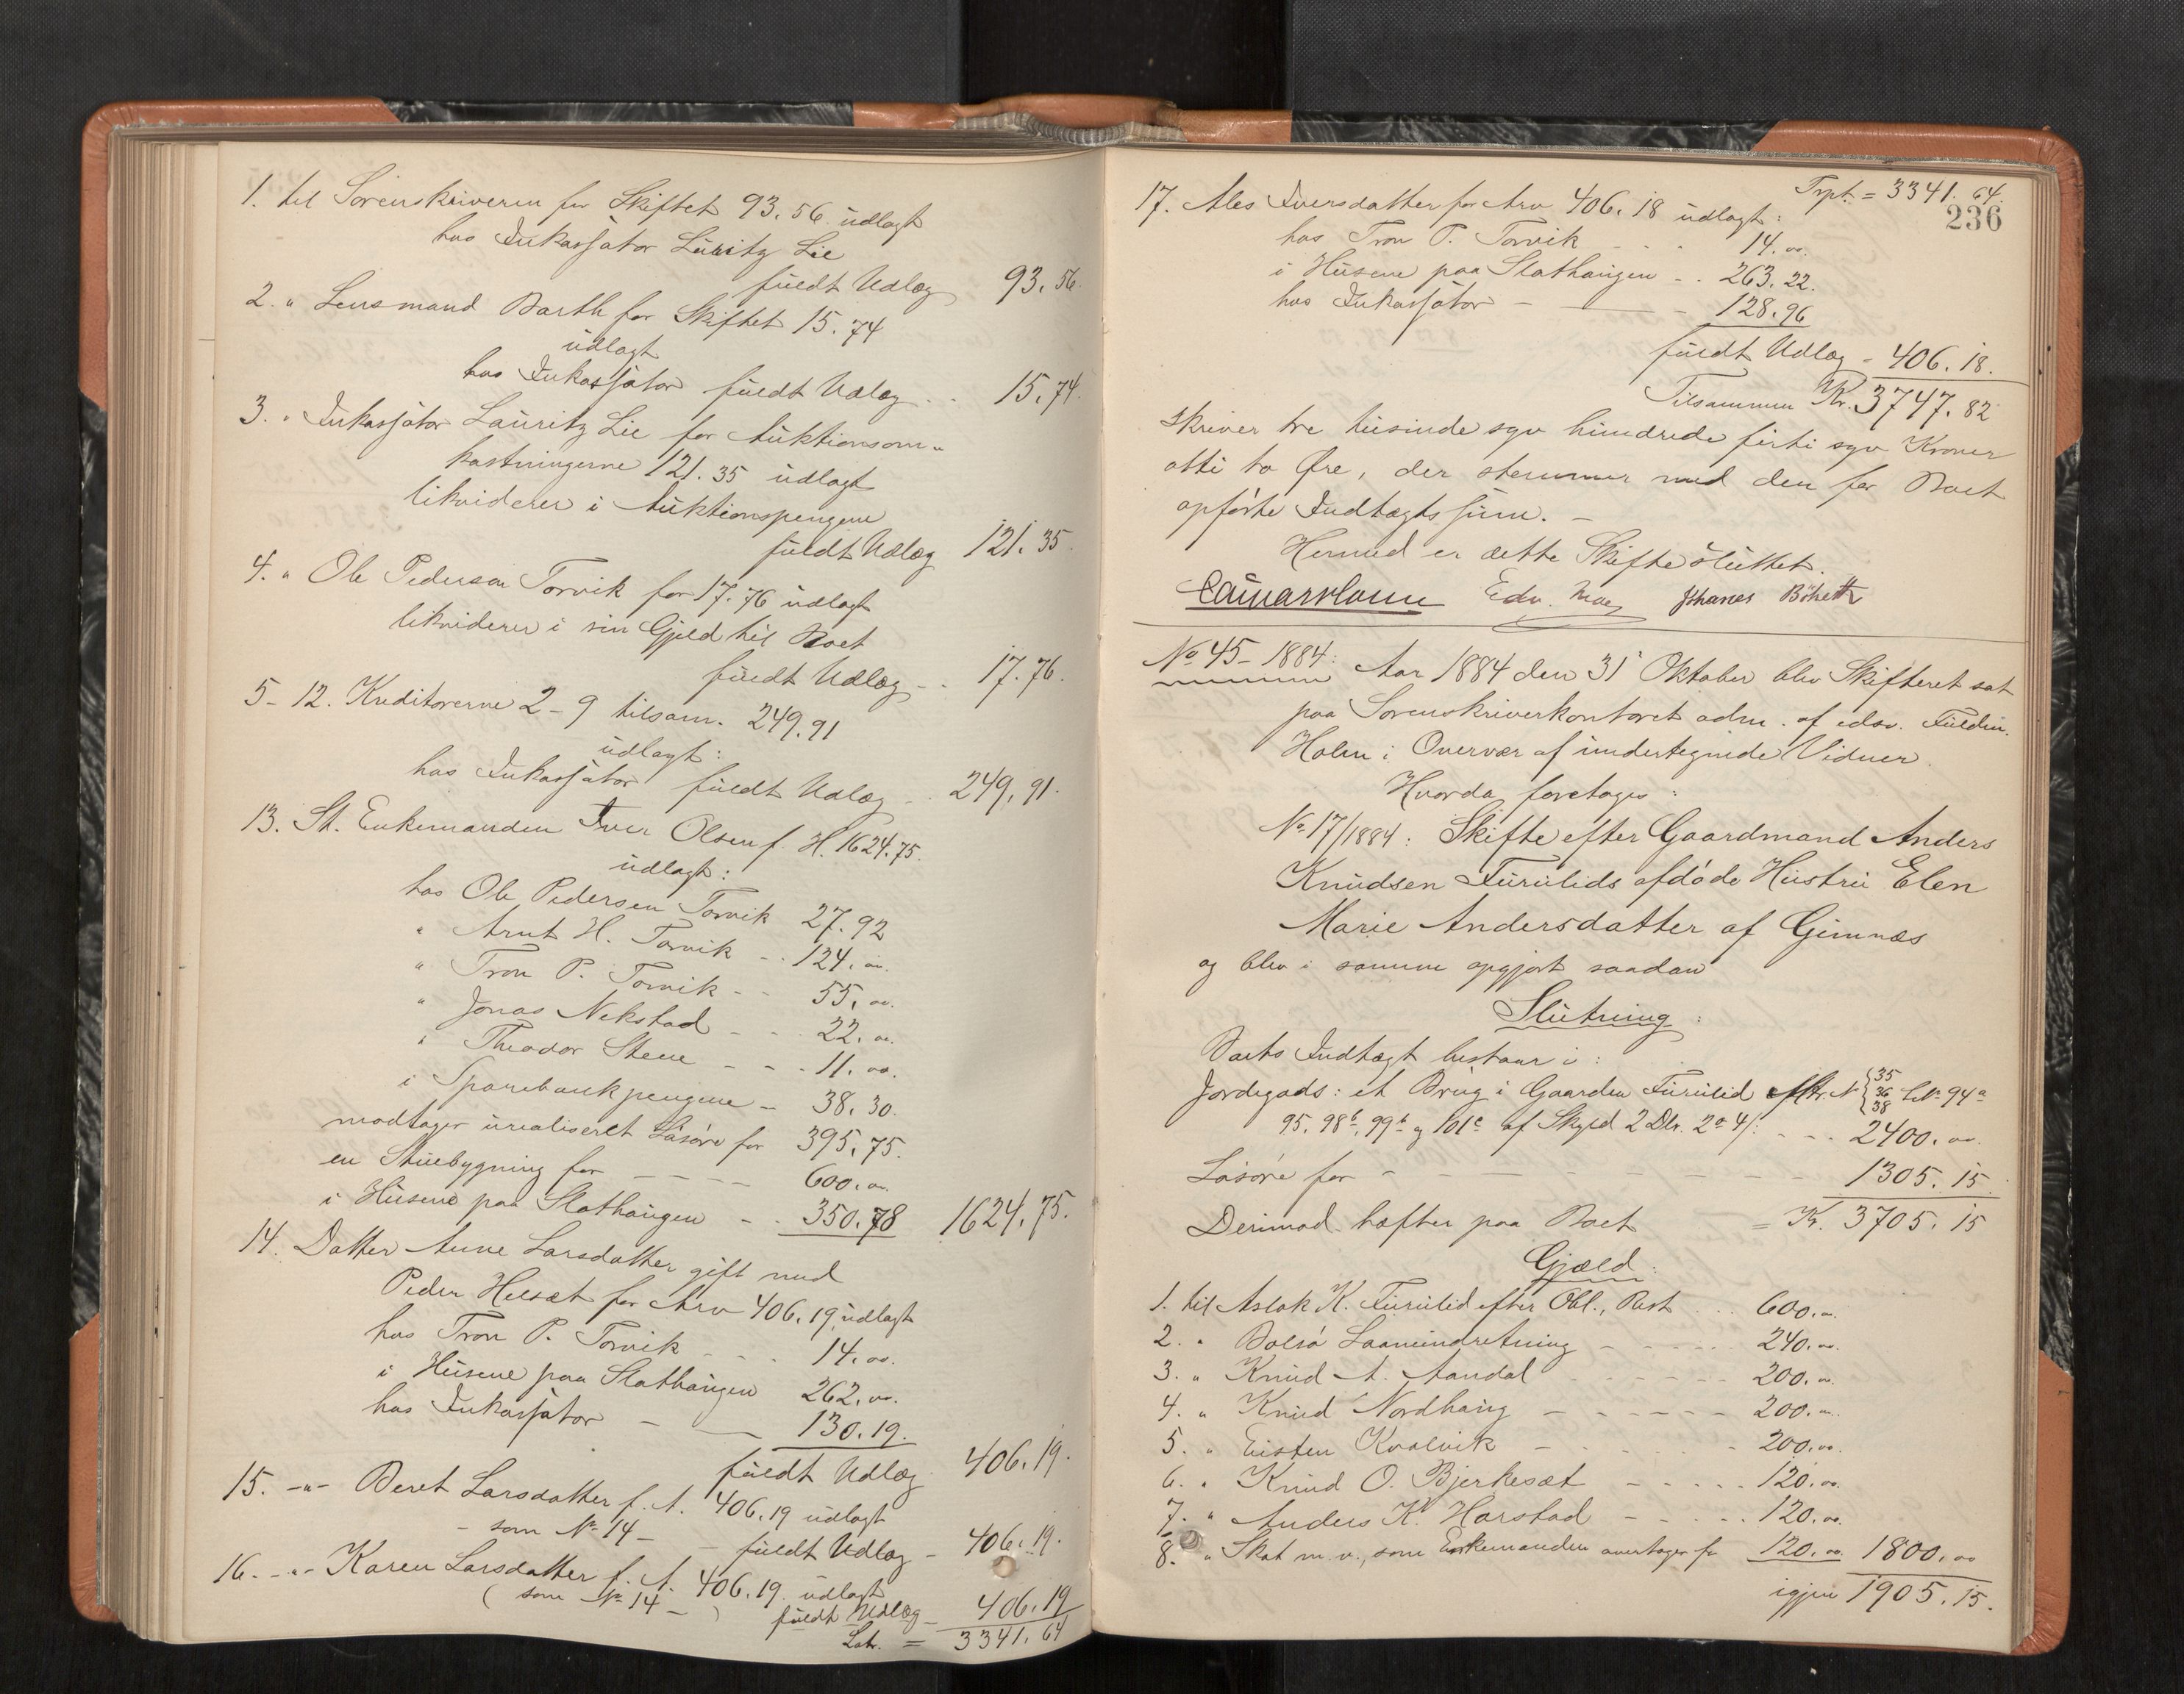 1. til Sorenskriveren for Skiftet 93.56 udlagt
hos Inkassator Lauritz Lie
fuldt Udlæg 93.56.
2. " Lensmand Barth for Skiftet 15.74
udlagt
hos Inkassator fuldt Udlæg . . 15.74.
3. " Inkassator Lauritz Lie for Auktionsom-
kostningerne 121.35 udlagt
likviderer i Auktionspengene
fuldt Udlæg 121.35.
4. " Ole Pedersen Torvik for 17.76 udlagt
likviderer i sin Gjæld til Boet
fuldt Udlæg - . 17.76.
5-12. Kreditorerne 2-9 tilsam. 249.91
udlagt:
hos Inkassator fuldt Udlæg - . 249.91.
13. St. Enkemanden Iver Olsen f. H. 1624.75.
udlagt:
hos Ole Pedersen Torvik 27.92
" Arnt H. Torvik - . 124.oo.
" Tron P. Torvik - - 55.oo.
" Jonas Nekstad - - 22.oo.
" Theodor Stene - - - 11.oo.
i Sparebankpengene - 38.30.
modtager urealiseret Løsøre for 395.75.
en Stuebygning for - - - - 600.oo.
i Husene paa Slathaugen - . 350.78 1624.75.
14. Datter Anne Larsdatter gift med
Peder Helset for Arv 406.19 udlagt
hos Tron P. Torvik - - . 14.oo.
i Husene paa Slathaugen 262.oo.
hos Inkassator - — 130.19.
fuldt Udlæg 406.19.
15. -"- Beret Larsdatter f. A. 406.19 udlagt
- som No 14 - - fuldt Udlæg - 406.19.
16. -"- Karen Larsdatter f. A. 406.19 udlagt
( som No 14 - ) fuldt Udlæg - 406.19
Latr. = 3341.64
Trpt. = 3341.64.
236
17. Ales Iversdatter for Arv 406.18 udlagt:
hos Tron P. Torvik - - . 14.oo.
i Husene paa Slathaugen - . 263.22.
hos Inkassator - — - 128.96
fuldt Udlæg - 406.18.
Tilsammen Kr. 3747.82
skriver tre tusinde syv hundrede firti syv Kroner
otti to Øre, der stemmer med den for Boet
opførte Indtægtssum. -
Hermed er dette Skifte sluttet.
Edv. Moe Johanes Böhett
No 45-1884: Aar 1884 den 31 Oktober blev Skifteret sat
paa Sorenskriverkontoret adm. af edsv. Fuldm.
Holm i Overvær af undertegnede Vidner.
Hvorda foretages:
No. 17/1884: Skifte efter Gaardmand Anders
Knudsen Furulids afdøde Hustru Elen
Marie Andersdatter af Gimnæs
og blev i samme opgjort saadan
Slutning:
Boets Indtægt bestaar i:
Jordegods: et Brug i Gaarden Furulid Mtr. N {35 36 38 L.No 94a
95. 98b, 99b og 101c af Skyld 2 Dlr. 2 o 4/: - - . 2400.oo.
Løsøre for - - - - - - - 1305.15.
Derimod hæfter paa Boet = Kr. 3705.15
Gjæld:
1. til Aslak K. Furulid efter Obl., Rest . . . 600.oo.
2. " Bolsø Laaneindretning - - - - - 240.oo.
3. " Knud A. Aandal - - - - - 200.oo.
4. " Knud Nordhaug - - - - - - 200.oo.
5. " Eisten Kvalvik - - - - - 200.oo.
6. " Knud O. Bjerkesæt - - - - . 120.oo.
7. " Anders K. Harstad - - - - . 120.oo.
8. " Skat m.v., som Enkemanden overtager for 120.oo 1800.oo
igjen 1905.15.